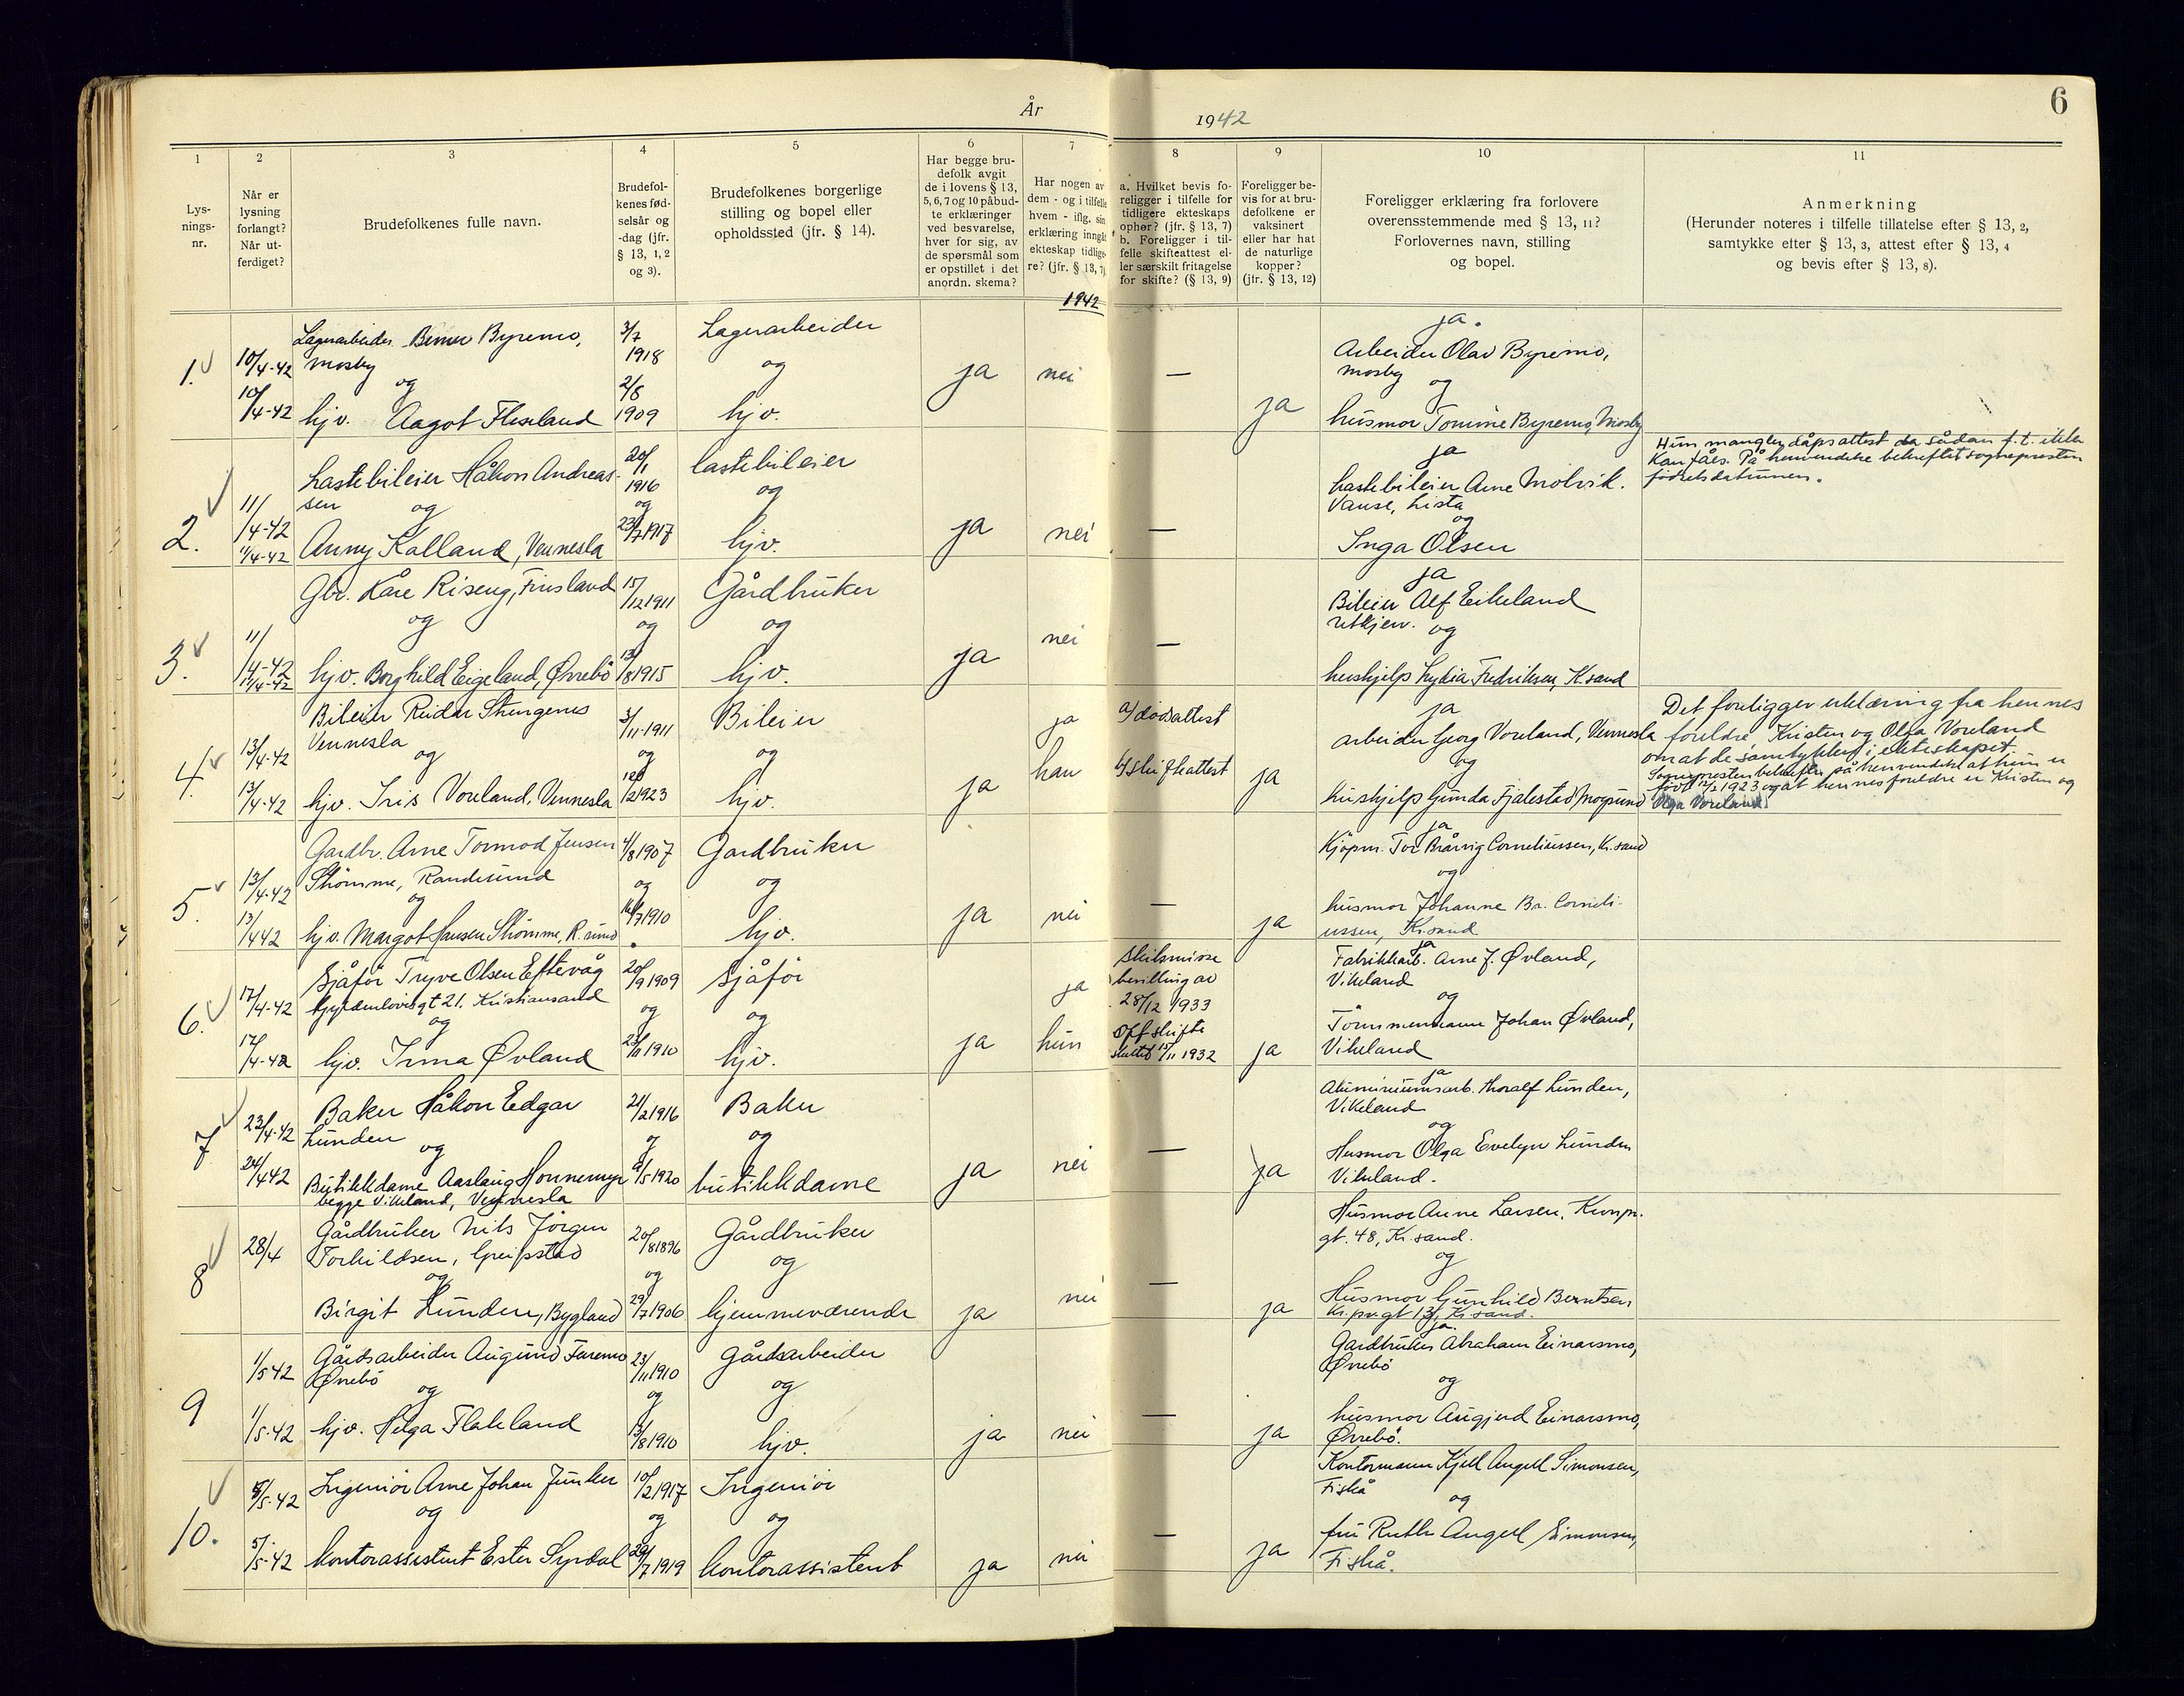 År 1942
6
1
2
3
4
5
6
7
8
9
10
11
Lys-
nings-
nr.
Når er
lysning
forlangt?
Når ut-
ferdiget?
Brudefolkenes fulle navn.
Brudefol-
kenes fød-
selsår og
-dag (jfr.
§ 13, 1, 2
og 3).
Brudefolkenes borgerlige
stilling og bopel eller
opholdssted (jfr. § 14).
Har begge bru-
defolk avgit
de i lovens § 13,
5, 6, 7 og 10 påbud-
te erklæringer
ved besvarelse,
hver for sig, av
de spørsmål som
er opstillet i det
anordn. skema?
Har nogen av
dem - og i tilfelle
hvem - iflg. sin
erklæring inngåt
ekteskap tidlige-
re? (jfr. § 13, 7)
1942
a. Hvilket bevis fo-
religger i tilfelle for
tidligere ekteskaps
ophør? (jfr. § 13, 7)
b. Foreligger i til-
felle skifteattest el-
ler særskilt fritagelse
for skifte? (§ 13, 9)
Foreligger be-
vis for at bru-
defolkene er
vaksinert
eller har hat
de naturlige
kopper?
(jfr. § 13, 12)
Foreligger erklæring fra forlovere
overensstemmende med § 13, 11?
Forlovernes navn, stilling
og bopel.
Anmerkning
(Herunder noteres i tilfelle tillatelse efter § 13, 2,
samtykke efter § 13, 3, attest efter § 13, 4
og bevis efter § 13, 8).
1.
10/4-42
10/4-42
Lagerarbeider Byremo,
Mosby
og
hjv. Aagot
3/7
1918
2/8
1909
Lagerarbeider
og
hjv.
ja
nei
—
ja
ja.
Arbeider Olav Byremo,
Mosby
og
husmor Tomine Byremo, Mosby
2.
11/4-42
11/4-42
Lastebileier Håkon Andreas-
sen og
Anny Kalland, Vennesla
20/1
1916
og
23/7 1917
lastebileier
og
hjv.
ja
nei
—
ja
Lastebileier Arne Molvik.
Vanse, Lista
og
Inga Olsen
Hun mangler dåpsattest da sådan f.t. ikke
kan fåes. På henvendelse bekreftet sognepresten
fødselsdatumen.
3.
11/4-42
11/4-42
Gbr. Kåre Riseng, Finsland
og
hjv. Borghild Eigeland, Øvrebö
15/12 1911
og
13/8 1915
Gårdbruker
og
hjv.
ja
nei
—
ja
Bileier Alf Eikeland
og
hushjelp Lydia Fredriksen, K.sand
4.
13/4-42
13/4-42
Bileier Reidar Stengenes
Vennesla
og
hjv. Iris Voreland, Vennesla
3/11-1911
og
12/2 1923
Bileier
og
hjv.
ja
ja
han
a/ dödsattest
b/ skifteattest
ja
ja
arbeider Georg Voreland, Vennesla
og
hushjelp Gunda Fjalestad
Det foreligger erklæring fra hennes
foreldre Kristen og Olga Voreland
om at de samtykker i ekteskapet.
Sognepresten bekrefter på henvendelse at hun er
født 12/2 1923 og at hennes foreldre er Kristen og
Olga Voreland
5.
13/4-42
13/4 42
Gardbr. Arne Tormod Jensen
Strömme, Randesund
og
hjv. Margot Hansen Strömme, R.sund
4/8 1907
og
16/7 1910
Gardbruker
og
hjv.
ja
nei
—
ja
ja
Kjöpm. Tor Brårvig Corneliussen, Kr.sand
og
husmor Johanne Br. Corneli-
ussen, Kr.sand
6.
17/4-42
17/4-42
Sjåför Trygve Olsen Eftevåg
Gyldenløvesgt 21. Kristiansand
og
hjv. Irma Øvland
20/9 1909
og
23/11 1910
Sjåför
og
hjv.
ja
ja
hun
Skilsmisse
bevilling av
28/12 1933
Off skifte
sluttet 15/11 1932
ja
ja
Fabrikkarb. Arne J. Øvland,
Vikeland
og
Tömmermann Johan Øvland,
Vikeland
7
23/4-42
24/4 42
Baker Håkon Edgar
Lunden
og
Butikkdame Aaslaug Honnemyr
begge Vikeland, Vennesla
21/2 1916
og
9/5 1920
Baker
og
butikkdame
ja
nei
—
ja
ja
Aluminiumsarb. Thoralf Lunden,
Vikeland
og
Husmor Olga Evelyn Lunden
Vikeland.
8
28/4
Gårdbruker Nils Jörgen
Torkildsen, Greipstad
og
Birgit Lunden, Bygland
20/8 1896
og
29/7 1906
Gårdbruker
og
hjemmeværende
ja
nei
—
ja
Husmor Anne Larsen, Kronpr.
gt. 48, Kr.sand.
og
Husmor Gunhild Berntsen
Kr.pr.gt 13, Kr.sand.
9
1/5 42
1/5-42
Gårdsarbeider Augund Faremo
Øvrebö
og
hjv. Helga Flakeland
23/11 1910
og
13/8 1910
gårdsarbeider
og
hjv.
ja
nei
—
ja
ja.
Gardbruker Abraham Einarsmo,
Øvrebö
og
husmor Augjerd Einarsmo,
Øvrebö.
10.
5/5-42
5/5-42
Ingeniör Arne Johan Junker
og
kontorassistent Ester Syrdal
10/2 1917
og
29/7 1919
Ingeniör
og
kontorassistent
ja
nei
—
ja
Kontormann Kjell Angell Simonsen,
Fiskå
og
fru Ruth Angell Simonsen,
Fiskå.